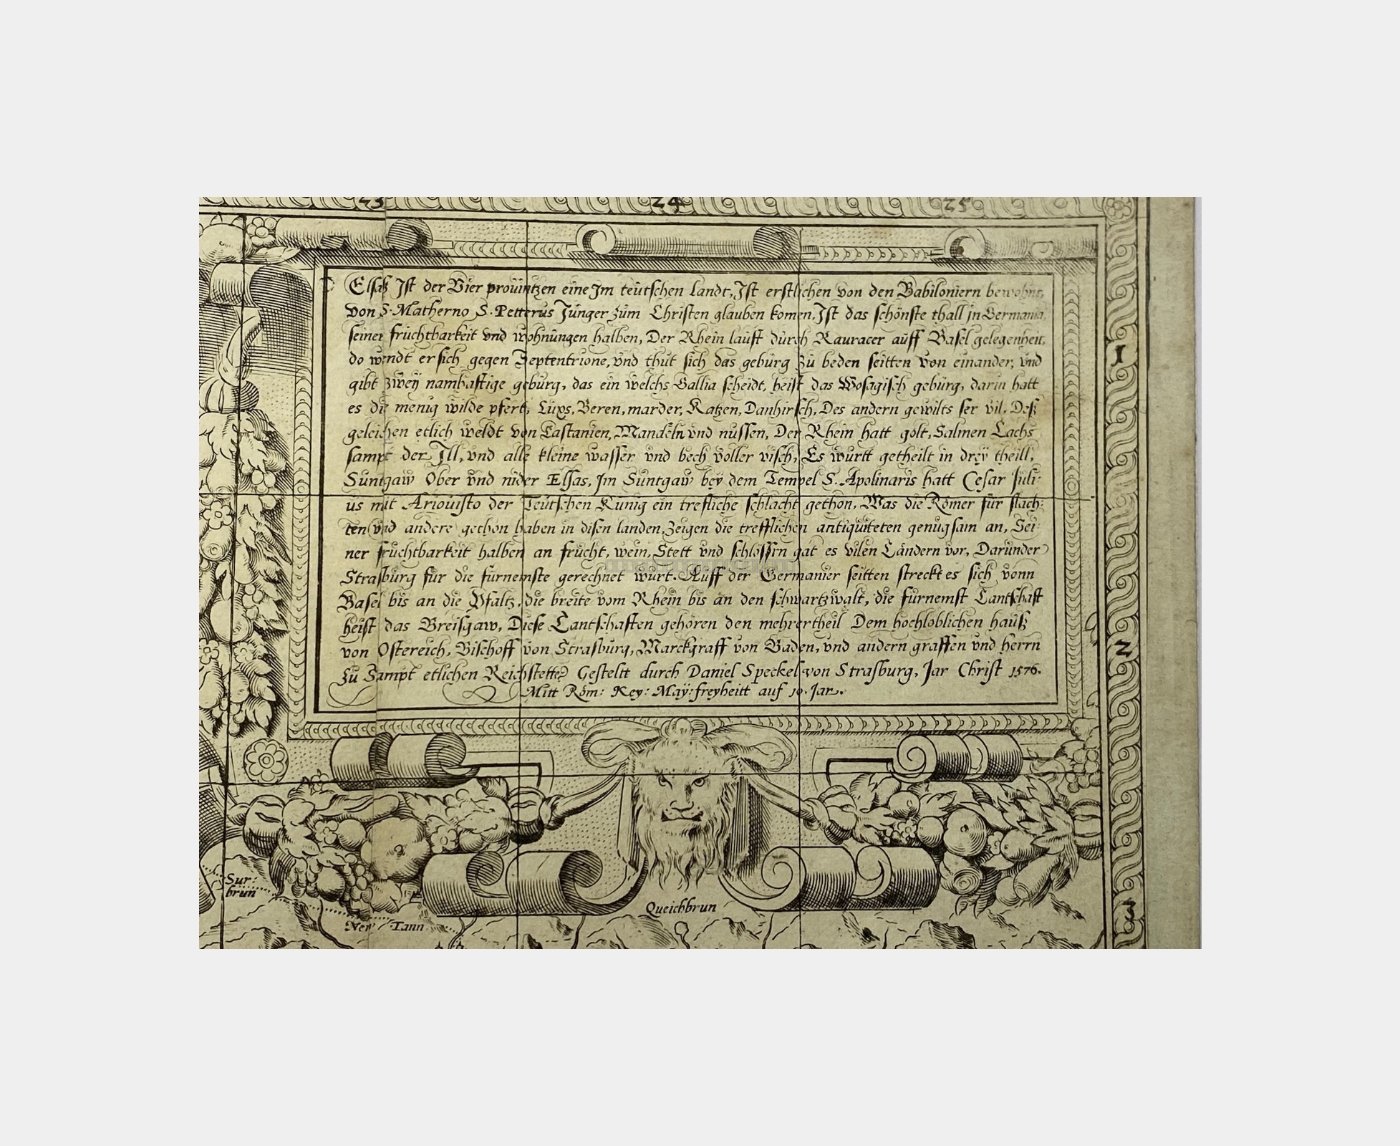 23 24 25
Elsas Ist der Vier prouintzen eine Im teutschen Landt, Ist erstlichen von den Babiloniern bewohnt,
von S. Matherno S. Petterus Junger zum Christen glauben komen, Ist das schönste thall in Germania,
seiner fruchtbarkeit vnd wohnungen halben, Der Rhein lauft durch Rauracer auff Basel gelegenheit,
do wendt er sich gegen Septentrione, vnd thut sich das gebürg zu beden seitten von einander, vnd
gibt zweÿ namhaftige gebürg, das ein welchs Gallia scheidt, heist das Wosagisch gebürg, darin hatt
es die menig wilde pfert, Luxs, Beren, marder, Katzen, Danhirsch, Des andern gewilts ser vil. Deß
geleichen etlich weldt von Castanien, Mandeln vnd nussen, Der Rhein hatt golt, Salmen Lachs
sampt der Ill, vnd alle kleine wasser vnd bech voller visch, Es württ getheilt in dreÿ theill,
Suntgaw Ober vnd nider Elsas, Im Suntgaw beÿ dem Tempel S. Apolinaris hatt Cesar Juli-
us mit Ariouisto der Teutschen Kunig ein trefliche schlacht gethon, Was die Römer für slach-
ten vnd andere gethon haben in disen landen, Zeigen die trefflichen antiquiteten genugsam an, Sei-
ner fruchtbarkeit halben an frucht, wein, Stett vnd schlossern gat es vilen Ländern vor, Darunder
Strasburg für die fürnemste gerechnet würt. Auff der Germanier seitten streckt es sich vonn
Basel bis an die Pfaltz, die breite vom Rhein bis an den schwartzwalt, die fürnemst Lantschaft
heist das Breisgaw, Diese Lantschaften gehören den mehrertheil Dem hochloblichen hauß
von Ostereich, Bischoff von Strasburg, Marckgraff von Baden, vnd andern graffen vnd herrn
zu Sampt etlichen Reichstette Gestelt durch Daniel Speckel von Strasburg, Jar Christ 1576.
Mitt Röm: Key: Maÿ: freyheitt auf 10. Jar.
1
2
3
Sur:
brun
New Tann
Queichbrun